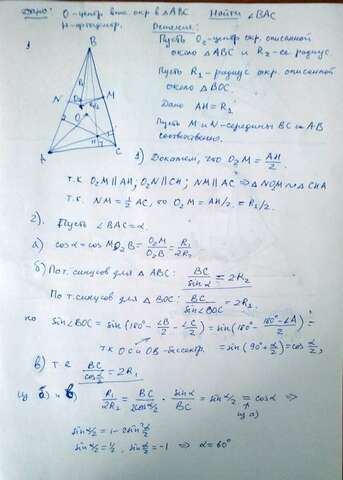 Дано: O-центр впис. окр в △ABC Найти ∠BAC
H-ортоцентр.
Решение:
1
Пусть O₂-центр окр. описанной
около △ABC и R₂-ее радиус.
Пусть R₁-радиус окр. описанной
около △BOC.
Дано AH=R₁
Пусть M и N-середины BC и AB
соответственно.
B
N
M
O
H
A
C
1) Докажем, что O₂M = AH/2.
т.к O₂M || AH; O₂N || CH; NM || AC ⇒ △NO₂M ~ △CHA
т.к. NM = 1/2 AC, то O₂M = AH/2 = R₁/2.
2). Пусть ∠BAC=α.
а) cosα = cos MO₂B = O₂M/O₂B = R₁/2R₂
б) По т. синусов для △ABC: BC/sinα = 2R₂
По т.синусов для △BOC: BC/sin∠BOC = 2R₁
но sin∠BOC = sin(180°-∠B/2-∠C/2) = sin(180°-(180°-∠A)/2) =
т.к OC и OB-биссектр. = sin(90°+α/2) = cos α/2,
в) т.е BC/cos α/2 = 2R₁
Из б) и в) R₁/2R₂ = BC/2cos α/2 · sinα/BC = sin α/2 = cosα ⇒
из а)
sin α/2 = 1-2sin² α/2
sin α/2 = 1/2, sin α/2 = -1 ⇒ α=60°